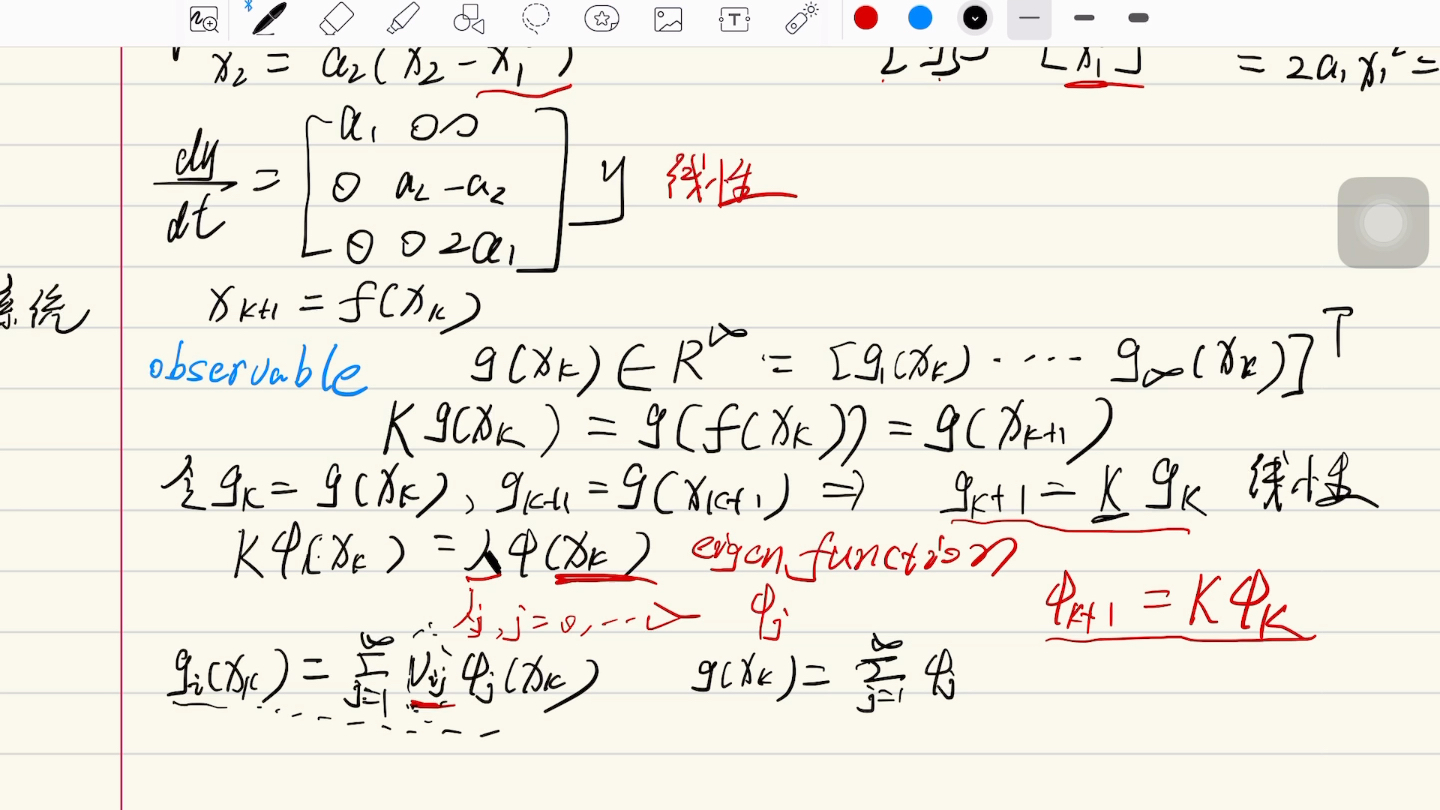 x₂ = a₂(x₂ - x₁²)
= 2a₁x₁² =
dy/dt = [a₁ 0 0; 0 a₂ -a₂; 0 0 2a₁] y 线性
系统 x_{k+1} = f(x_k)
observable g(x_k) ∈ R^∞ := [g₁(x_k) ⋯⋯ g_∞(x_k)]^T
K g(x_k) = g(f(x_k)) = g(x_{k+1})
令 g_k = g(x_k), g_{k+1} = g(x_{k+1}) ⇒ g_{k+1} = K g_k 线性
K φ(x_k) = λ φ(x_k) eigen function
λ_j, j=0,⋯> φ_j φ_{k+1} = K φ_k
g_i(x_k) = ∑_{j=1}^∞ v_{ij} φ_j(x_k) g(x_k) = ∑_{j=1}^∞ φ_j